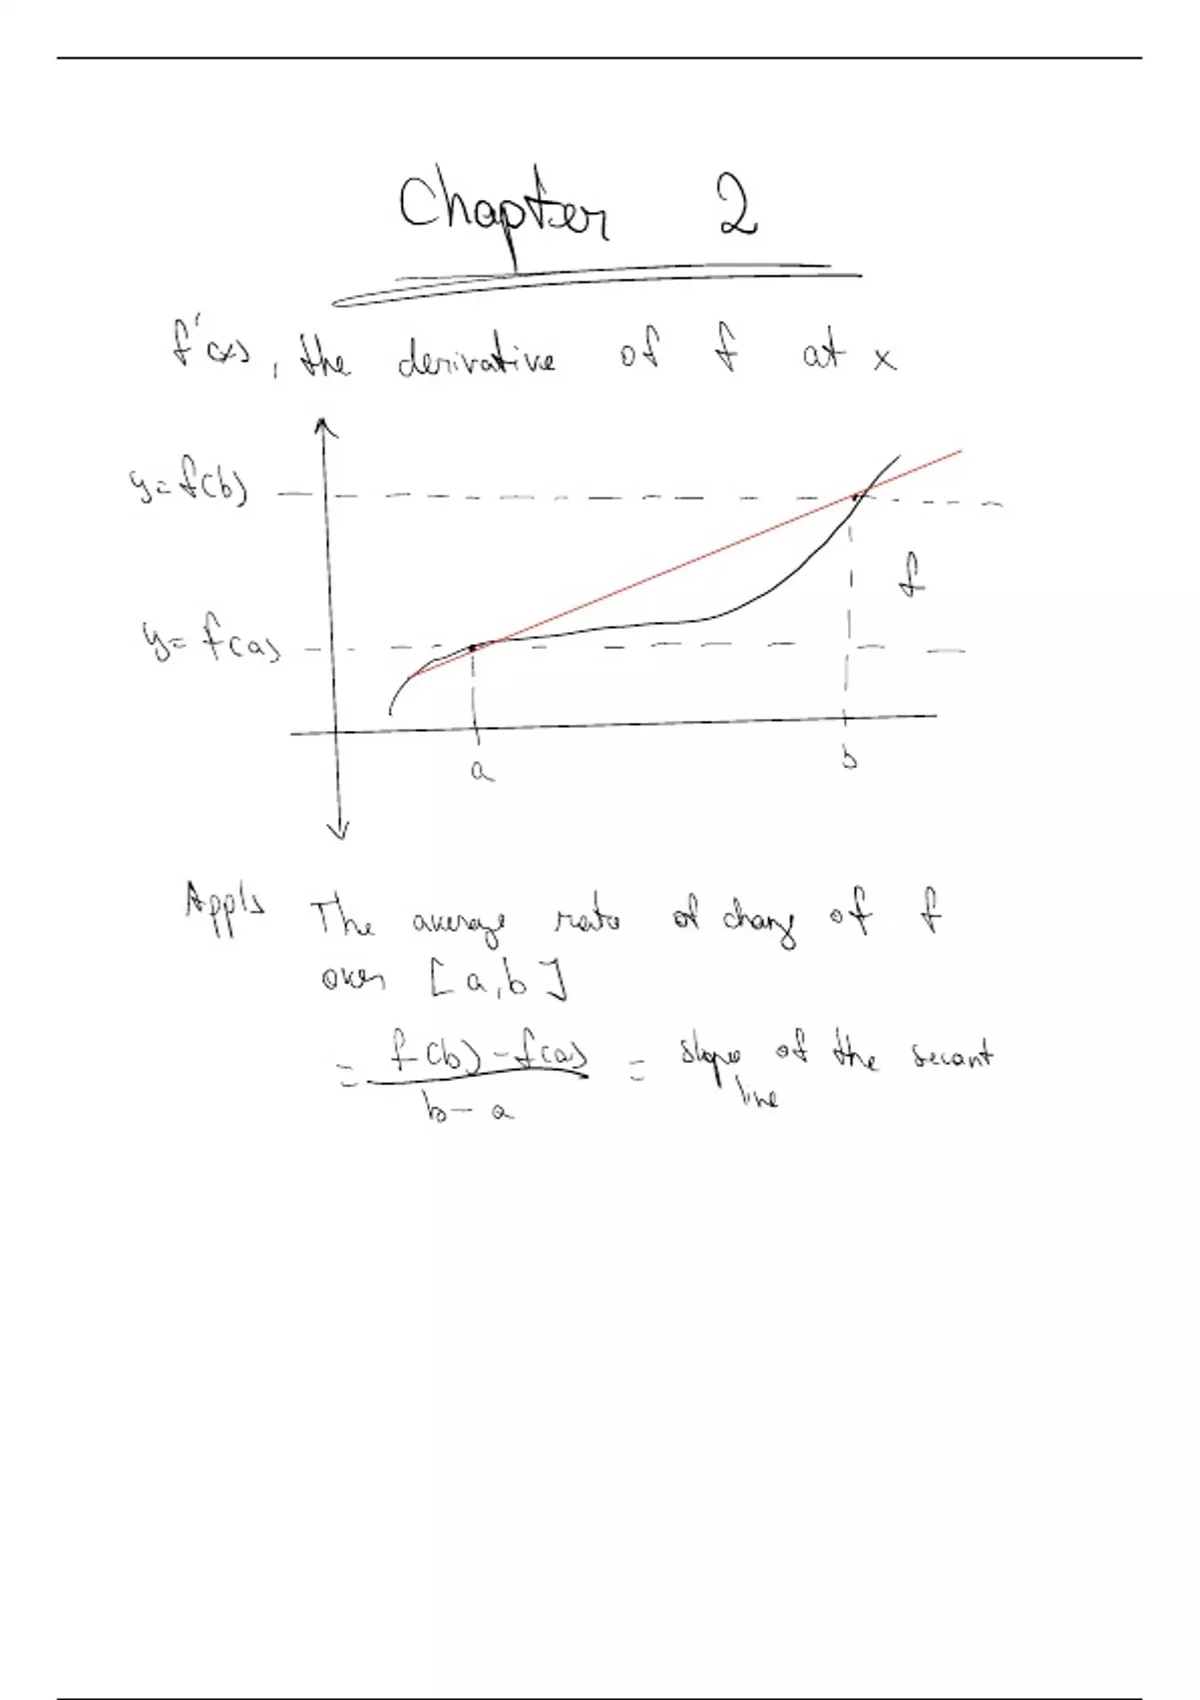 Chapter 2
f'(x), the derivative of f at x
y = f(b)
f
y = f(a)
a b
Appls The average rate of change of f
over [a, b]
= f(b) - f(a) / b - a = slope of the secant
line